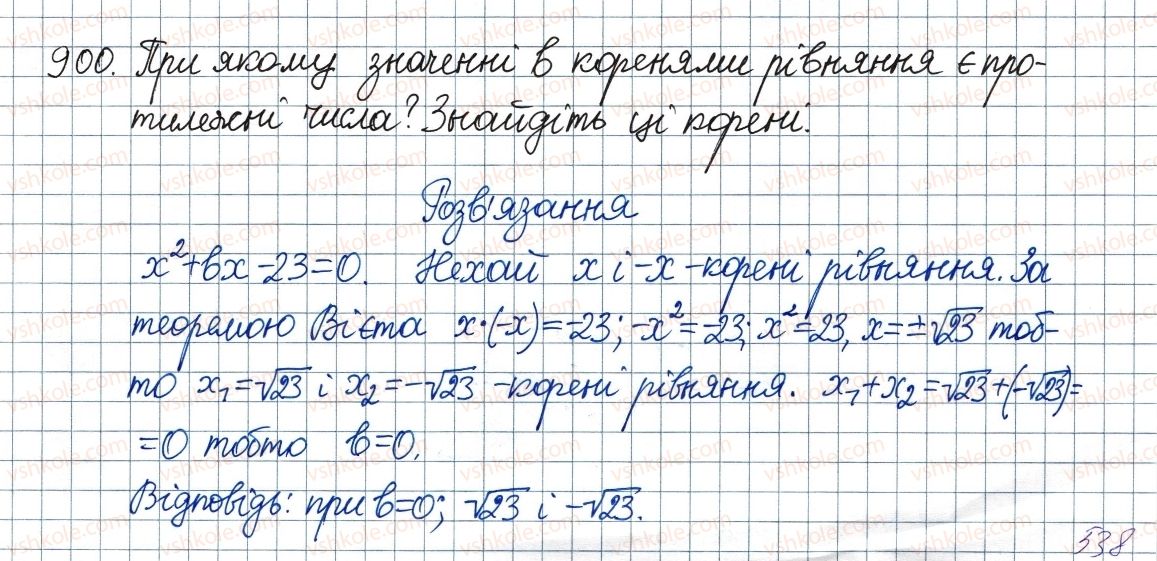 900. При якому значенні в коренями рівняння є про-
тилежні числа? Знайдіть ці корені.
Розв'язання
x²+вx-23=0. Нехай x і -x - корені рівняння. За
теоремою Вієта x·(-x)=-23; -x²=-23; x²=23, x=±√23 тоб-
то x₁=√23 і x₂=-√23 - корені рівняння. x₁+x₂=√23+(-√23)=
=0 тобто в=0.
Відповідь: при в=0; √23 і -√23.
538
vshkole.com